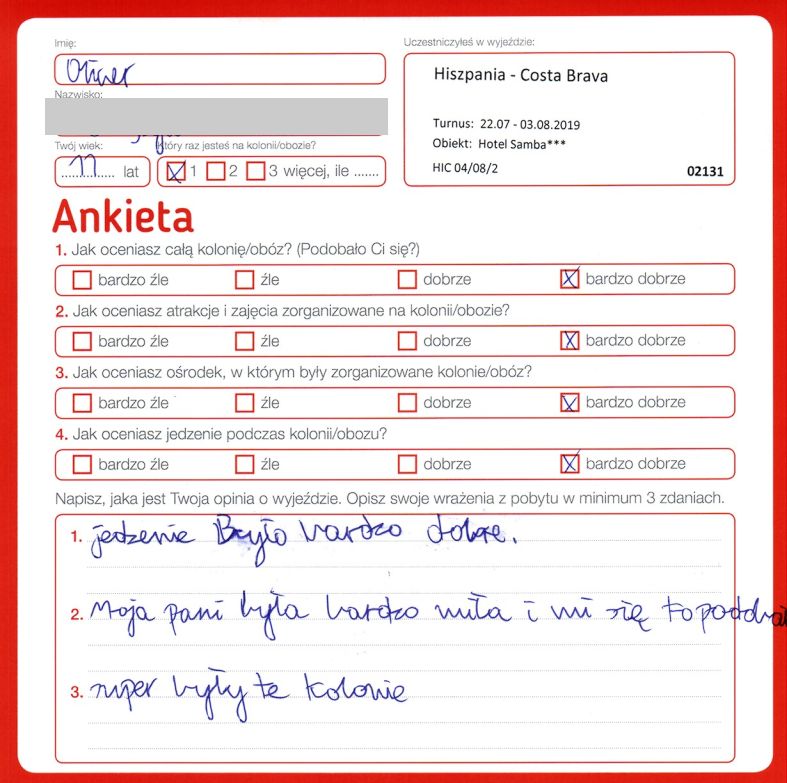 Imię:
Oliwer
Uczestniczyłeś w wyjeździe:
Hiszpania - Costa Brava
Turnus: 22.07 - 03.08.2019
Obiekt: Hotel Samba***
HIC 04/08/2
02131
Nazwisko:
Twój wiek:
11 lat
Który raz jesteś na kolonii/obozie?
1 2 3 więcej, ile .......
Ankieta
1. Jak oceniasz całą kolonię/obóz? (Podobało Ci się?)
bardzo źle źle dobrze bardzo dobrze
2. Jak oceniasz atrakcje i zajęcia zorganizowane na kolonii/obozie?
bardzo źle źle dobrze bardzo dobrze
3. Jak oceniasz ośrodek, w którym były zorganizowane kolonie/obóz?
bardzo źle źle dobrze bardzo dobrze
4. Jak oceniasz jedzenie podczas kolonii/obozu?
bardzo źle źle dobrze bardzo dobrze
Napisz, jaka jest Twoja opinia o wyjeździe. Opisz swoje wrażenia z pobytu w minimum 3 zdaniach.
1. jedzenie Było bardzo dobre.
2. Moja pani była bardzo miła i mi się to
3. super były te kolonie